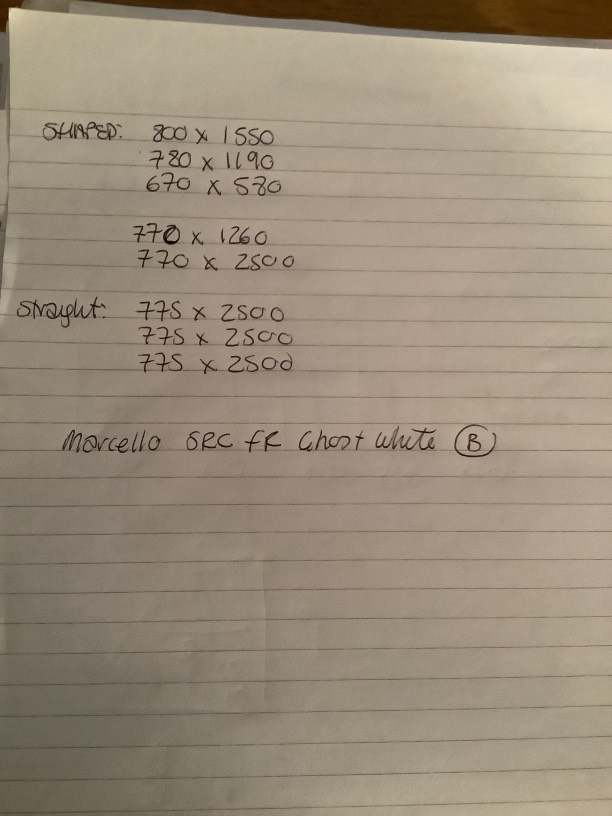 SHAPED: 800 x 1550
780 x 1190
670 x 580
770 x 1260
770 x 2500
Straight: 775 x 2500
775 x 2500
775 x 2500
Marcello SRC FR Ghost White B